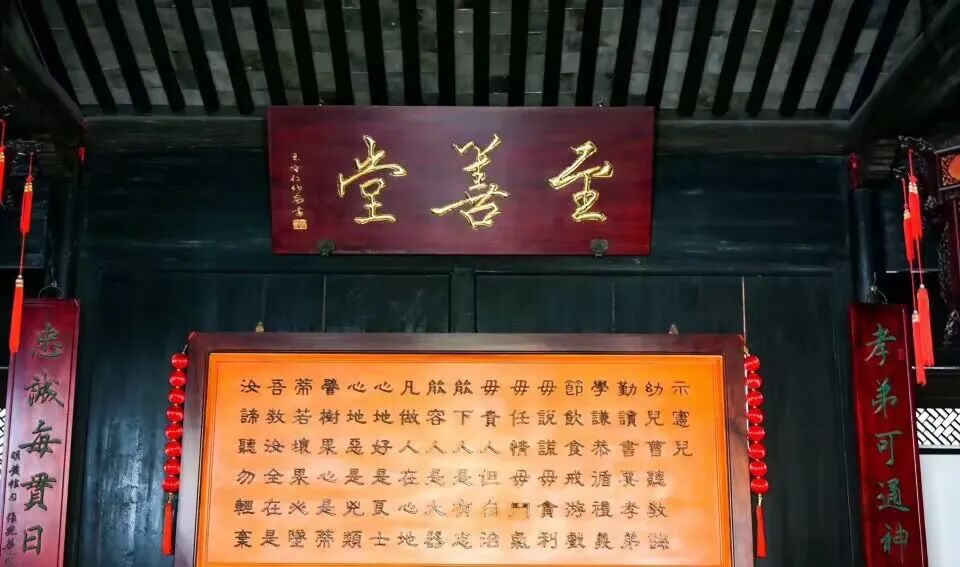 至善堂
孝弟可通神
忠誠每貫日
示憲兒
幼兒曹聽教誨
勤讀書要孝弟
學謙恭循禮義
節飲食戒游戲
毋說謊毋貪利
毋任情毋鬥氣
毋責人但自治
能下人是有志
能容人是大器
凡做人在心地
心地好是良士
心地惡是兇類
譬樹果心是蒂
蒂若壞果必墜
吾敎汝全在是
汝諦聽勿輕棄